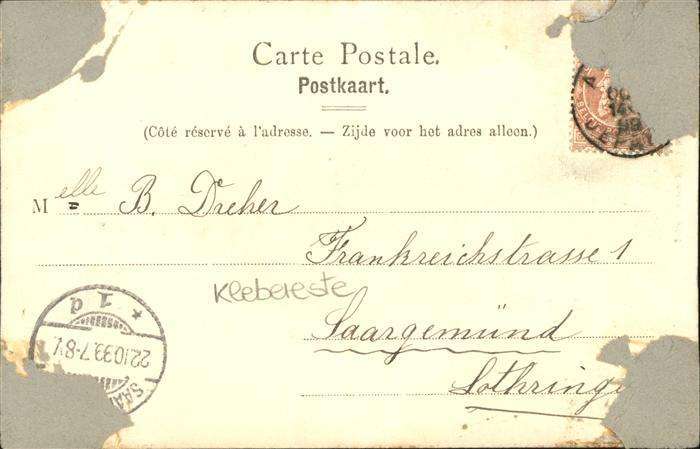 Carte Postale.
Postkaart.
(Côté réservé à l'adresse. — Zijde voor het adres alleen.)
Melle B. Dreher
Frankreichstrasse 1
Klebereste
Saargemünd
Lothring
* 1 d
22.10.99.7-8V.
SAA